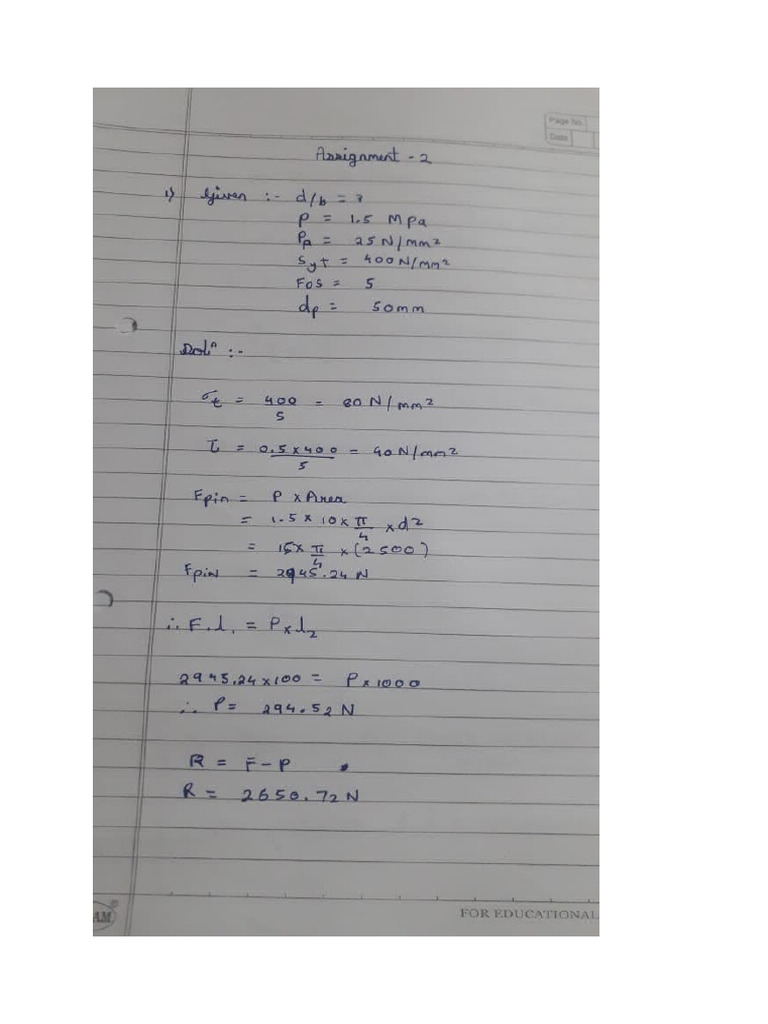 Page No.
Date
Assignment - 2
1) Given :- d/b = 3
P = 1.5 Mpa
Pp = 25 N/mm2
Syt = 400 N/mm2
FOS = 5
dp = 50mm
Solⁿ :-
σt = 400/5 = 80 N/mm2
τ = 0.5 x 400/5 = 40 N/mm2
Fpin = P x Area
= 1.5 x 10 x π/4 x d2
= 15 x π/4 x (2500)
Fpin = 2945.24 N
∴ F.l1 = P x l2
2945.24 x 100 = P x 1000
∴ P = 294.52 N
R = F - P
R = 2650.72 N
AM®
FOR EDUCATIONAL